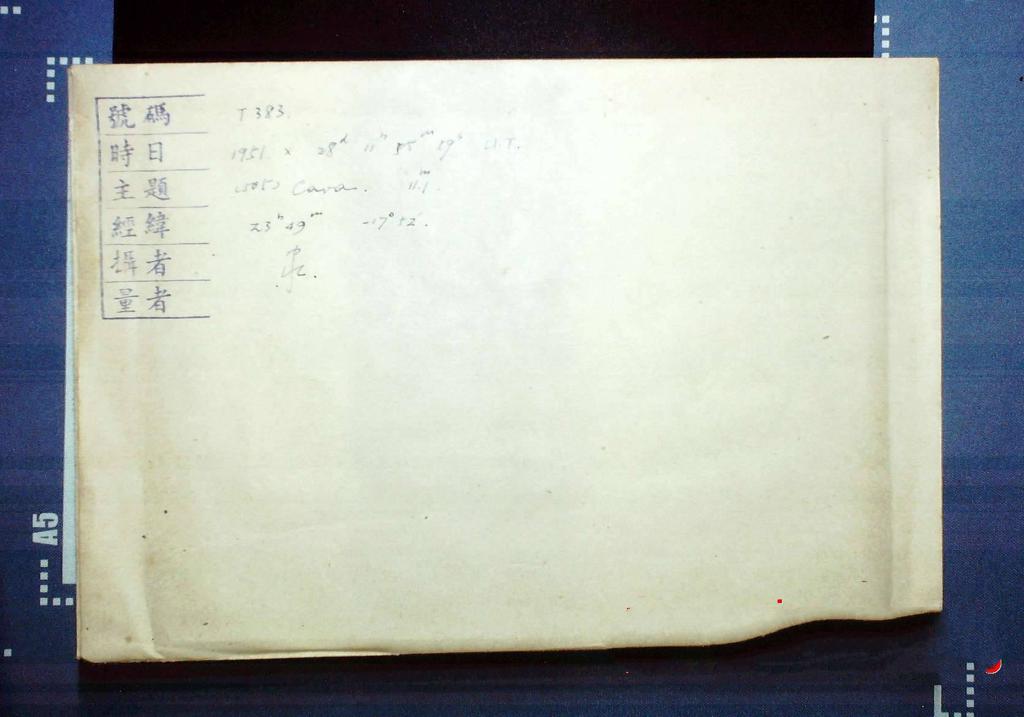 號碼 T 383.
時日 1951 x 28d 11h 55m 59s U.T.
主題 (505) Cava. 11.1m
經緯 23h 49m -17° 52'.
攝者
量者
A5